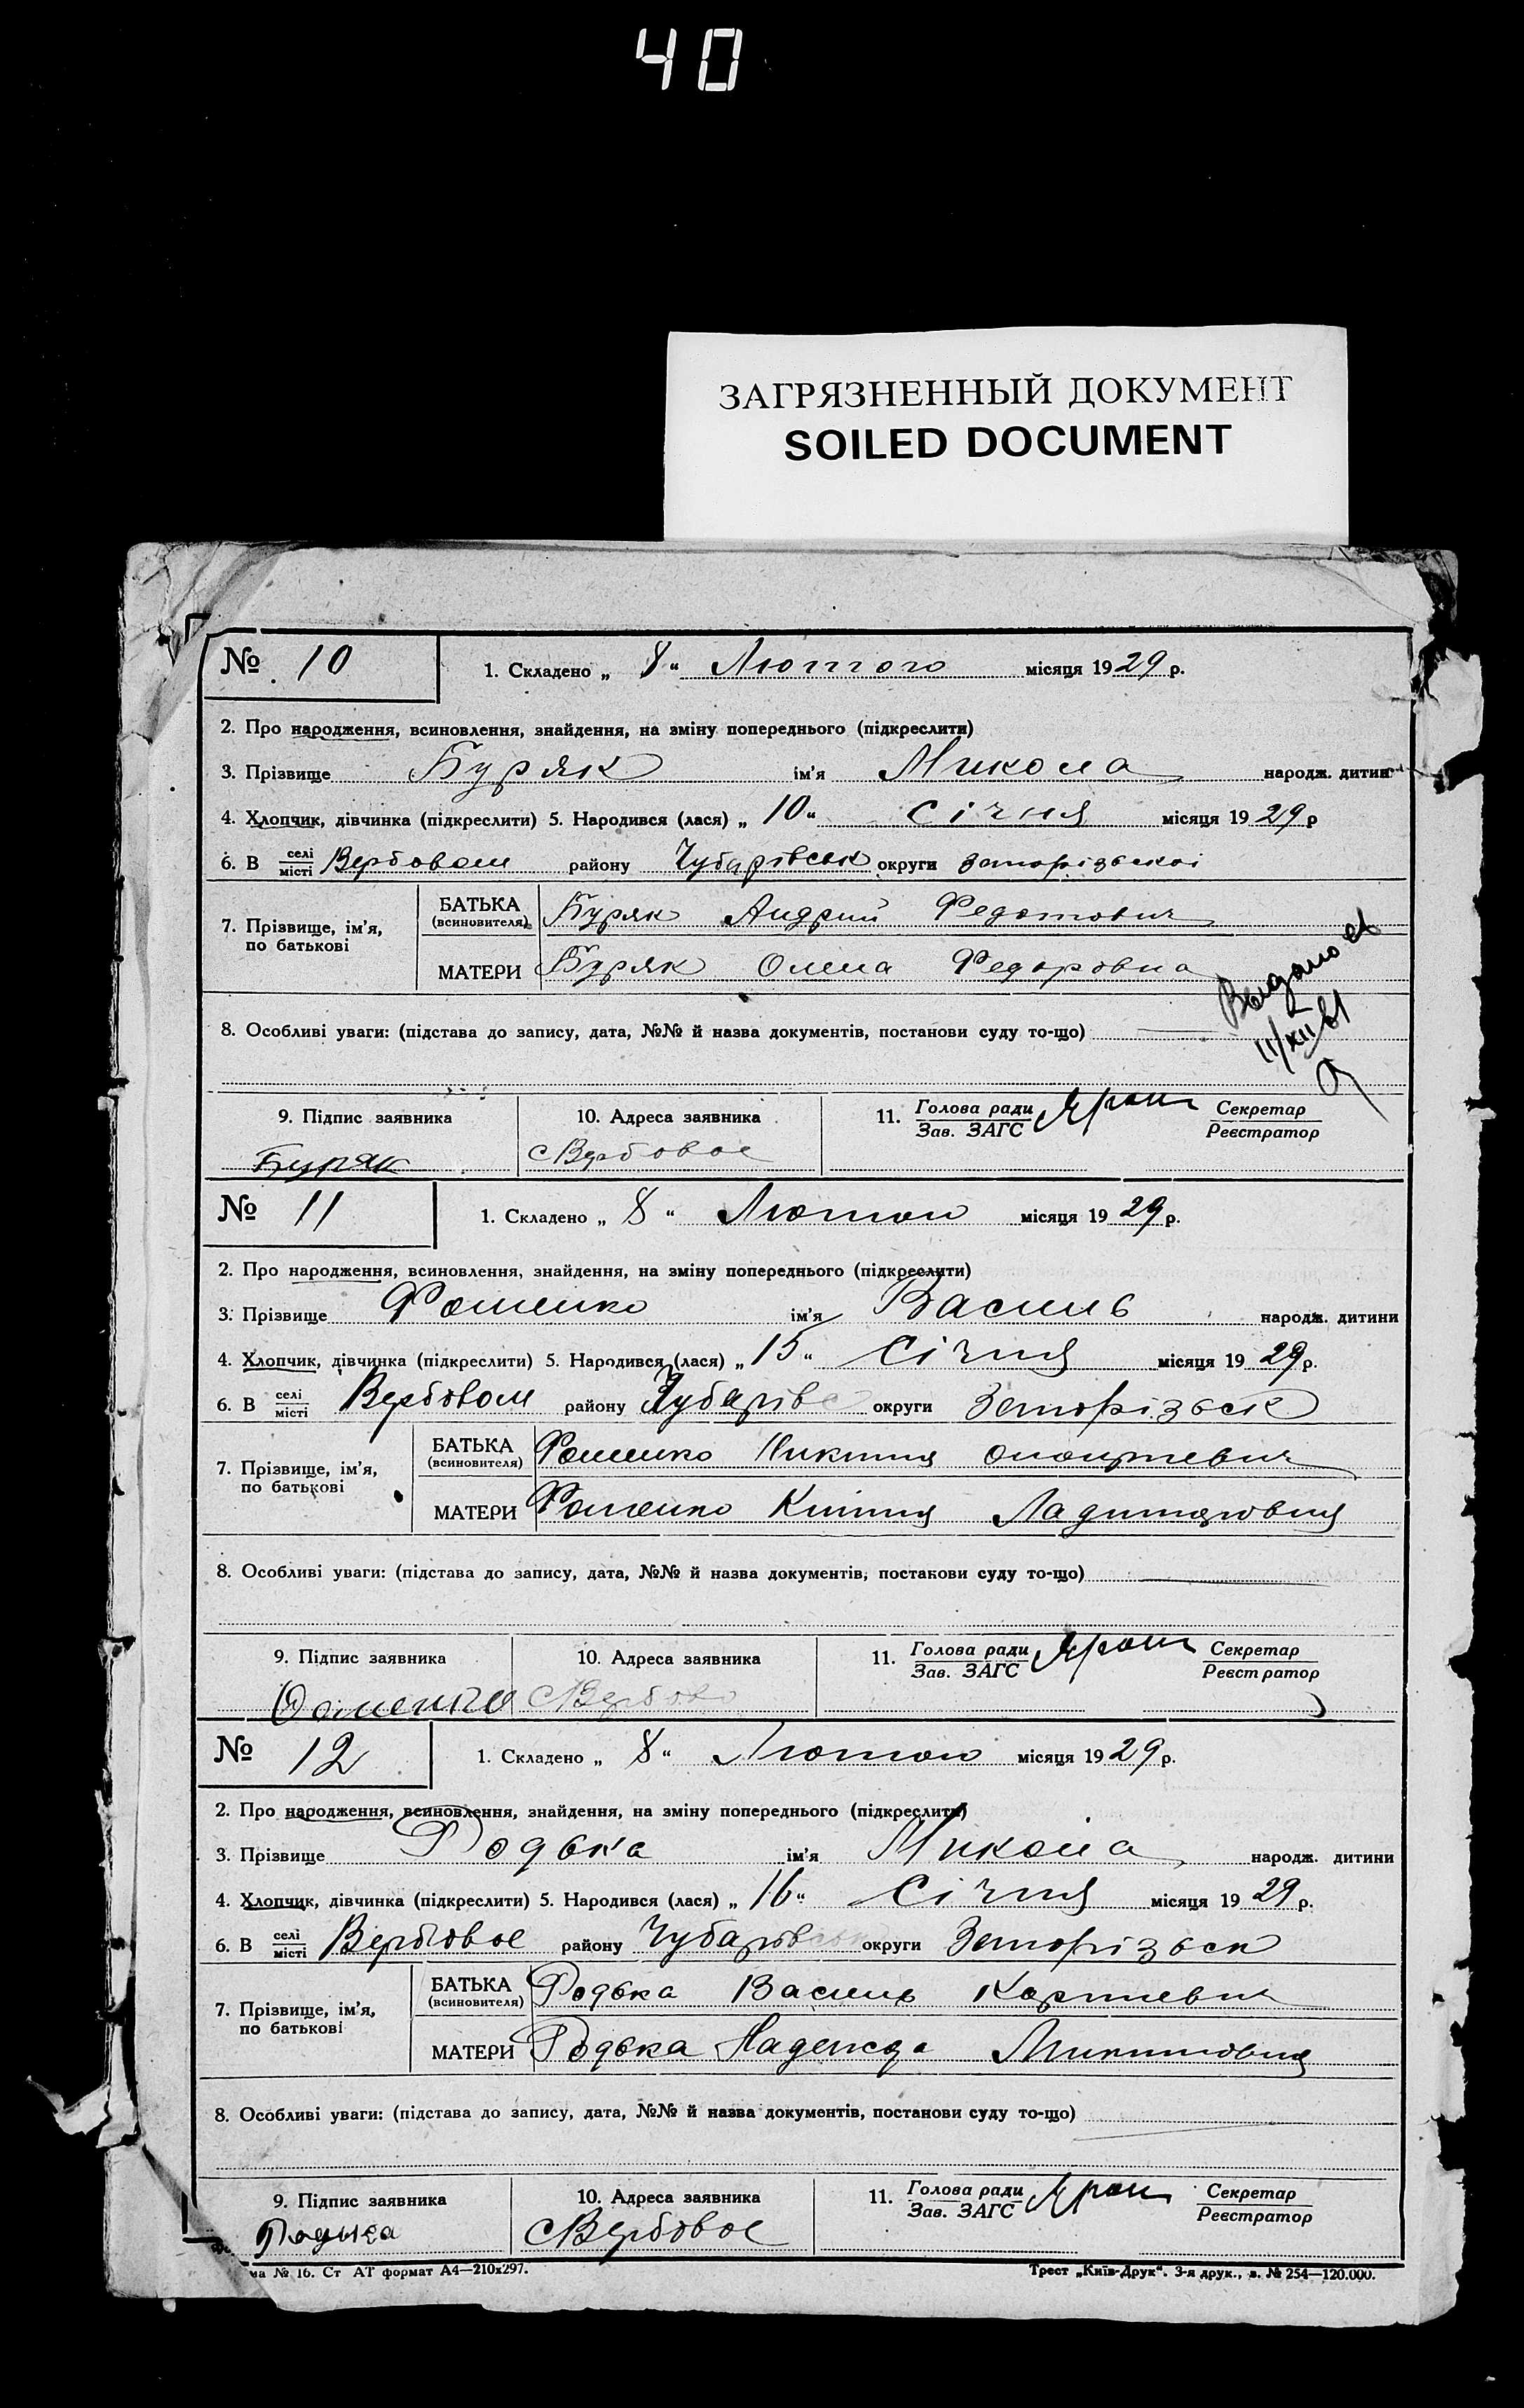 40
ЗАГРЯЗНЕННЫЙ ДОКУМЕНТ
SOILED DOCUMENT
№ 10 1. Складено „ 8 “ Лютого місяця 1929 р.
2. Про народження, всиновлення, знайдення, на зміну попереднього (підкреслити)
3. Прізвище Буряк ім'я Микола народж. дитин
4. Хлопчик, дівчинка (підкреслити) 5. Народився (лася) „ 10 “ Січня місяця 1929 р
6. В селі/місті Вербовом району Чубарівськ округи Запорізької
7. Прізвище, ім'я, по батькові
БАТЬКА (всиновителя) Буряк Андрий Федотович
МАТЕРИ Буряк Олена Федоровна
Выдано
11/XII 61
8. Особливі уваги: (підстава до запису, дата, №№ й назва документів, постанови суду то-що)
9. Підпис заявника 10. Адреса заявника 11. Голова ради/Зав. ЗАГС Секретар/Реєстратор
Буряк с Вербовое
№ 11 1. Складено „ 8 “ Лютого місяця 1929 р.
2. Про народження, всиновлення, знайдення, на зміну попереднього (підкреслити)
3. Прізвище Фоменко ім'я Василь народж. дитини
4. Хлопчик, дівчинка (підкреслити) 5. Народився (лася) „ 15 “ Січня місяця 1929 р.
6. В селі/місті Вербовом району Чубарівс округи Запорізьк
7. Прізвище, ім'я, по батькові
БАТЬКА (всиновителя) Фоменко Никита
МАТЕРИ Фоменко
8. Особливі уваги: (підстава до запису, дата, №№ й назва документів, постанови суду то-що)
9. Підпис заявника 10. Адреса заявника 11. Голова ради/Зав. ЗАГС Секретар/Реєстратор
Фоменко с Вербово
№ 12 1. Складено „ 8 “ Лютого місяця 1929 р.
2. Про народження, всиновлення, знайдення, на зміну попереднього (підкреслити)
3. Прізвище Родька ім'я Микола народж. дитини
4. Хлопчик, дівчинка (підкреслити) 5. Народився (лася) „ 16 “ Січня місяця 1929 р.
6. В селі/місті Вербовое району Чубарівськ округи Запорізьк
7. Прізвище, ім'я, по батькові
БАТЬКА (всиновителя) Родька Василь Карпиевич
МАТЕРИ Родька Надежда Микитовна
8. Особливі уваги: (підстава до запису, дата, №№ й назва документів, постанови суду то-що)
9. Підпис заявника 10. Адреса заявника 11. Голова ради/Зав. ЗАГС Секретар/Реєстратор
Родька с Вербовое
ма № 16. Ст АТ формат А4—210х297. Трест „Київ-Друк“. 3-я друк., з. № 254—120.000.